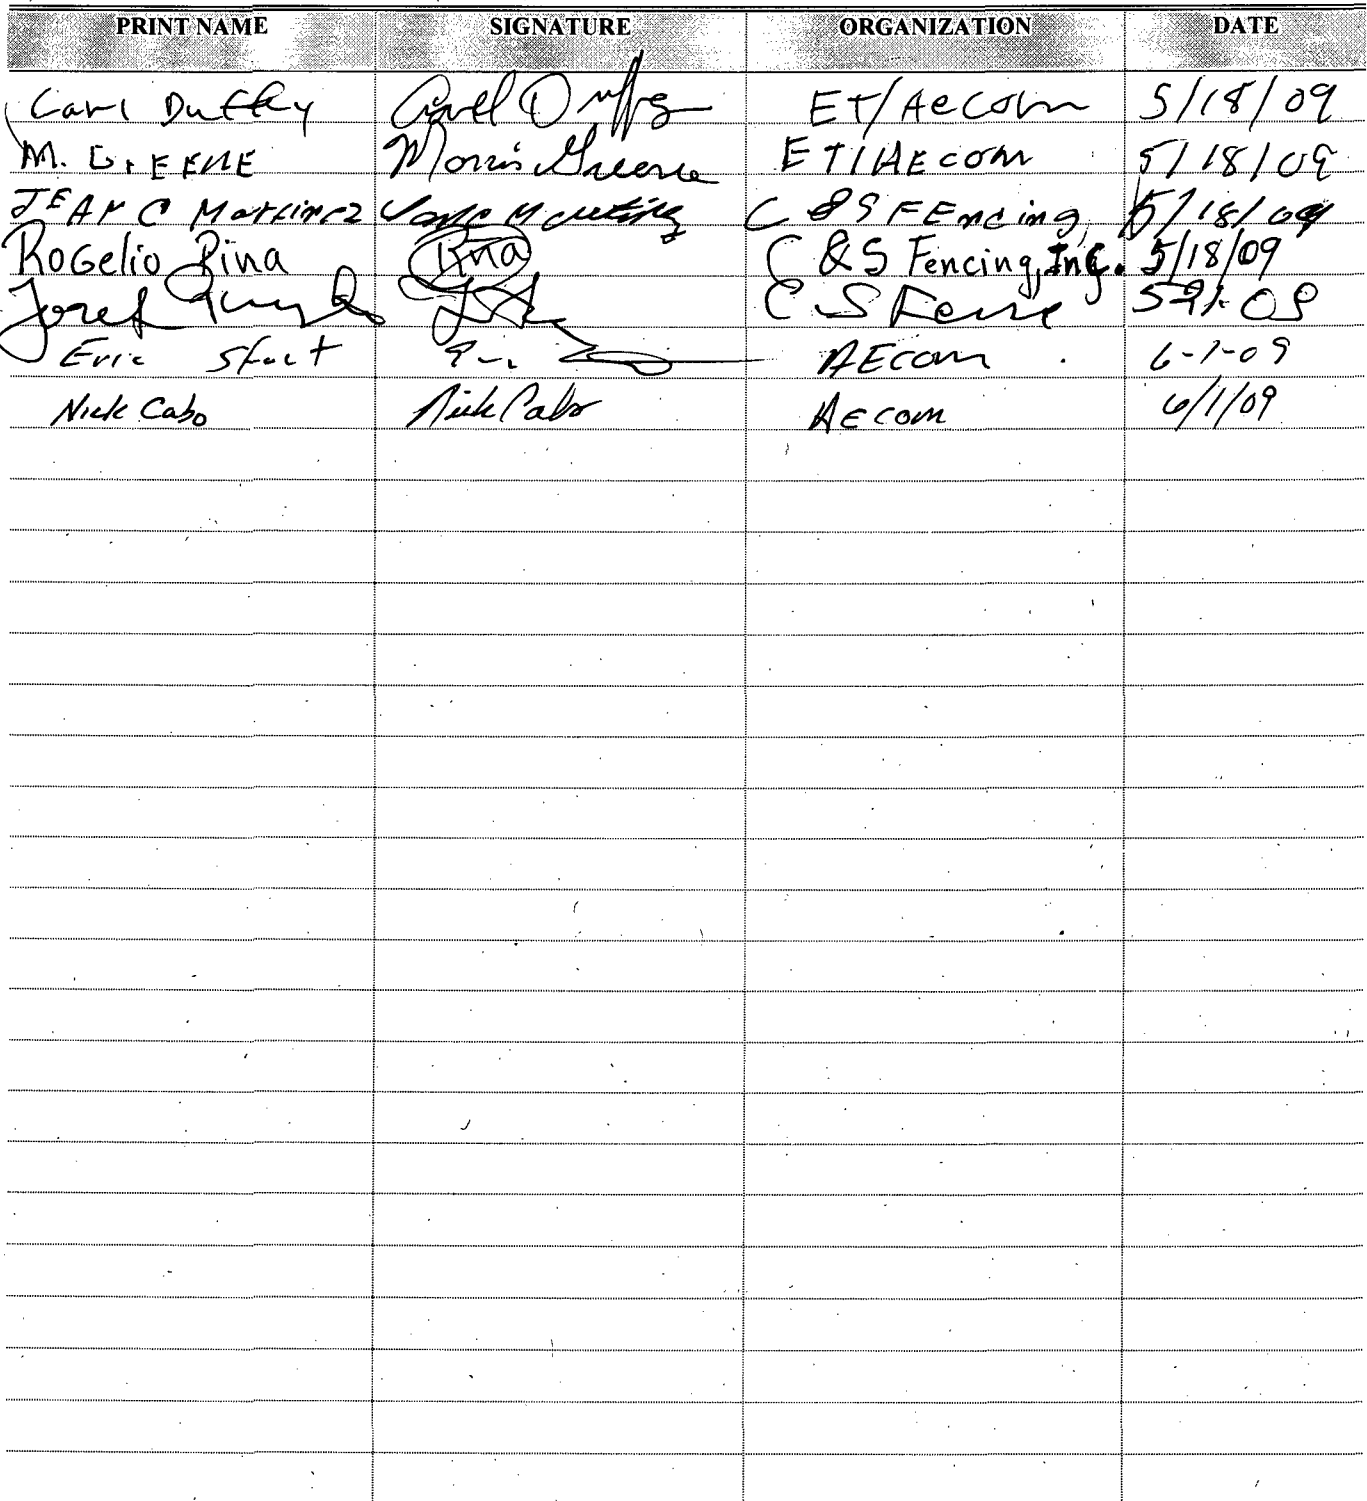 PRINT NAME SIGNATURE ORGANIZATION DATE
Carl Duffey Carl Duffey ET/AECOM 5/18/09
M. GrEENE Morris Greene ET/AECOM 5/18/09
Martinez C & S FEncing, 5/18/09
Rogelio Pina Pina C & S Fencing, Inc. 5/18/09
Josef C S Fence
Eric AECOM 6-1-09
Nick Cabo Nick Cabo AECOM 6/1/09